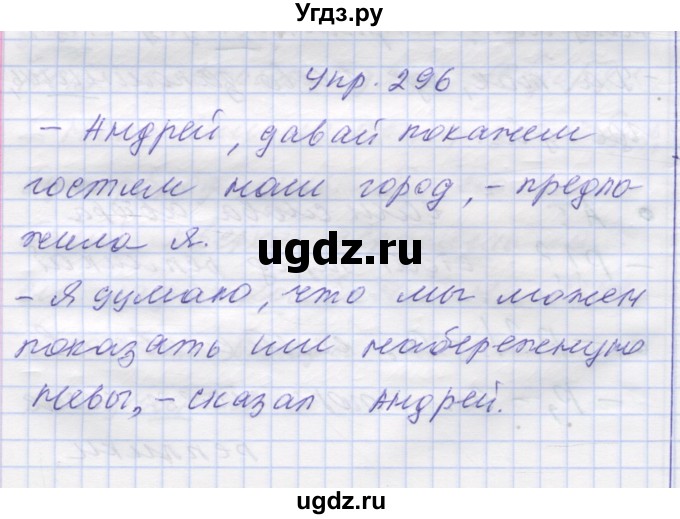 Угдз.ру
Упр. 296
– Андрей, давай покажем
гостям наш город, – предло
жила я.
ugdz.ru
– Я думаю, что мы можем
показать им набережную
Невы, – сказал Андрей.
ugdz.ru
ugdz.ru